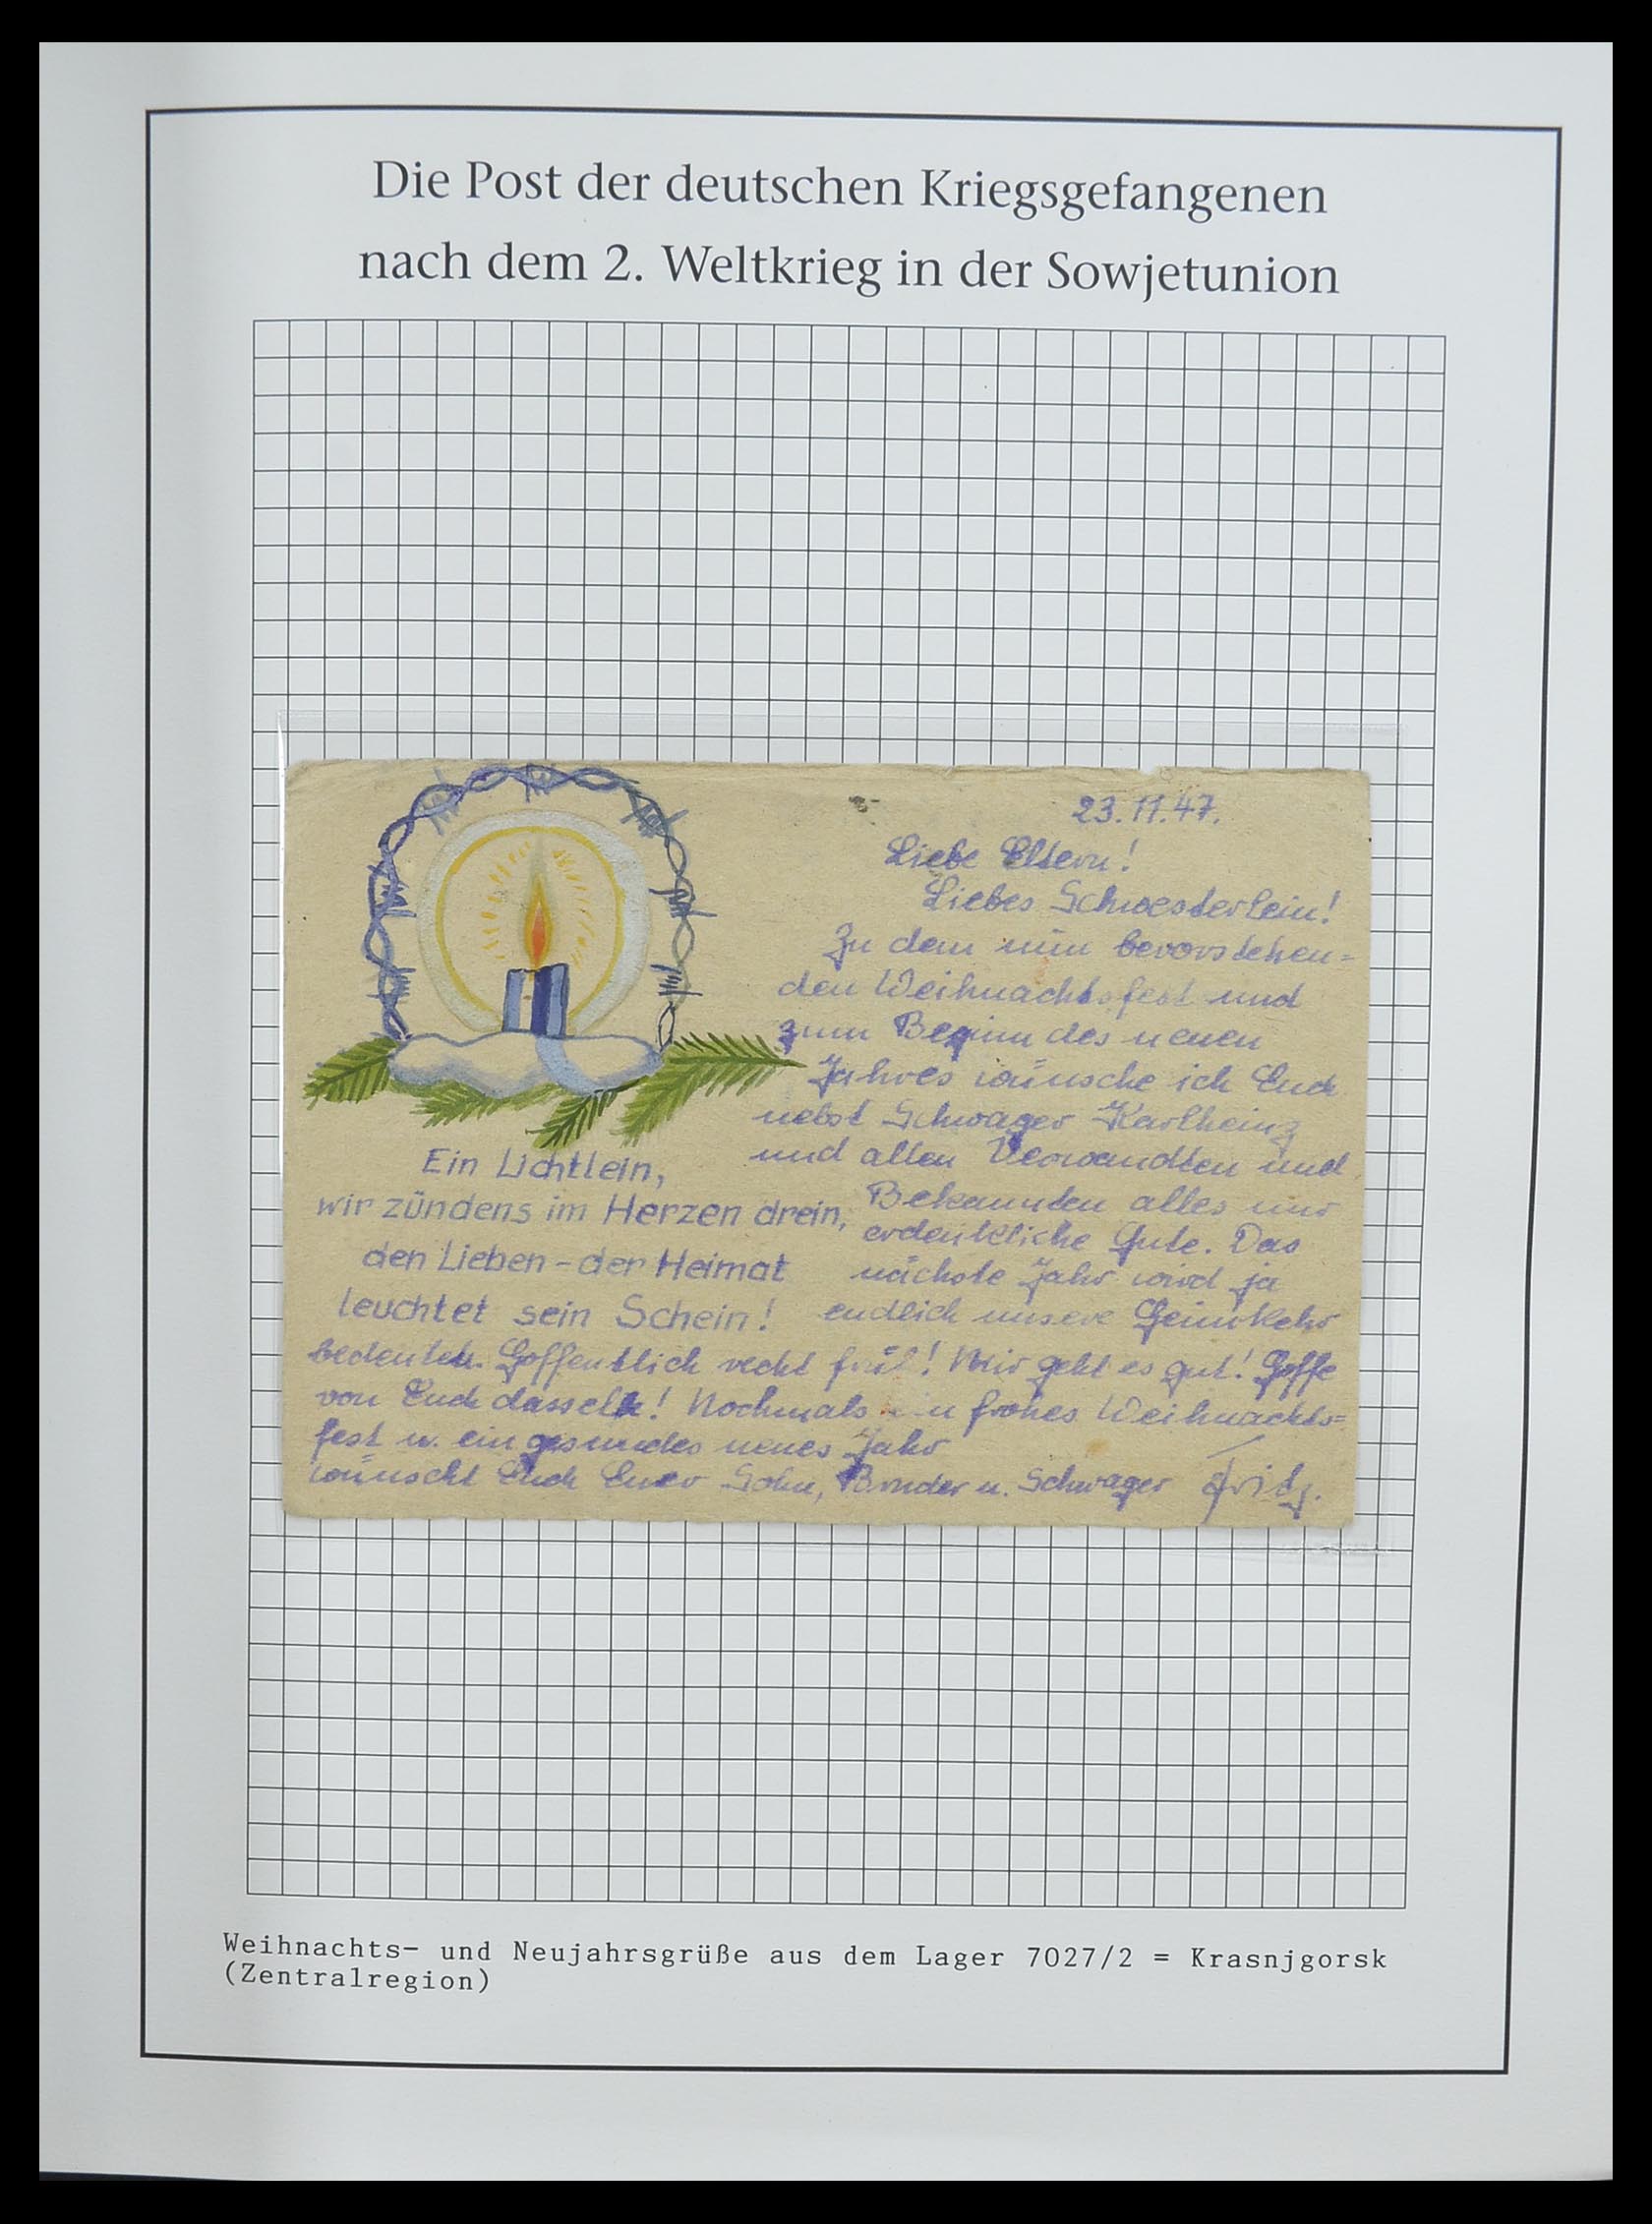 Die Post der deutschen Kriegsgefangenen
nach dem 2. Weltkrieg in der Sowjetunion
23.11.47.
Liebe Eltern!
Liebes Schwesterlein!
Zu dem nun bevorstehen-
den Weihnachtsfest und
zum Beginn des neuen
Jahres wünsche ich Euch
nebst Schwager Karlheinz
und allen Verwandten und
Bekannten alles nur
erdenkliche Gute. Das
nächste Jahr wird ja
endlich unsere Heimkehr
Ein Lichtlein,
wir zündens im Herzen drein,
den Lieben - der Heimat
leuchtet sein Schein!
bedeuten. Hoffentlich recht früh! Mir geht es gut! Hoffe
von Euch dasselbe! Nochmals ein frohes Weihnachts=
fest u. ein gesundes neues Jahr
wünscht Euch Euer Sohn, Bruder u. Schwager Fritz.
Weihnachts- und Neujahrsgrüße aus dem Lager 7027/2 = Krasnjgorsk
(Zentralregion)